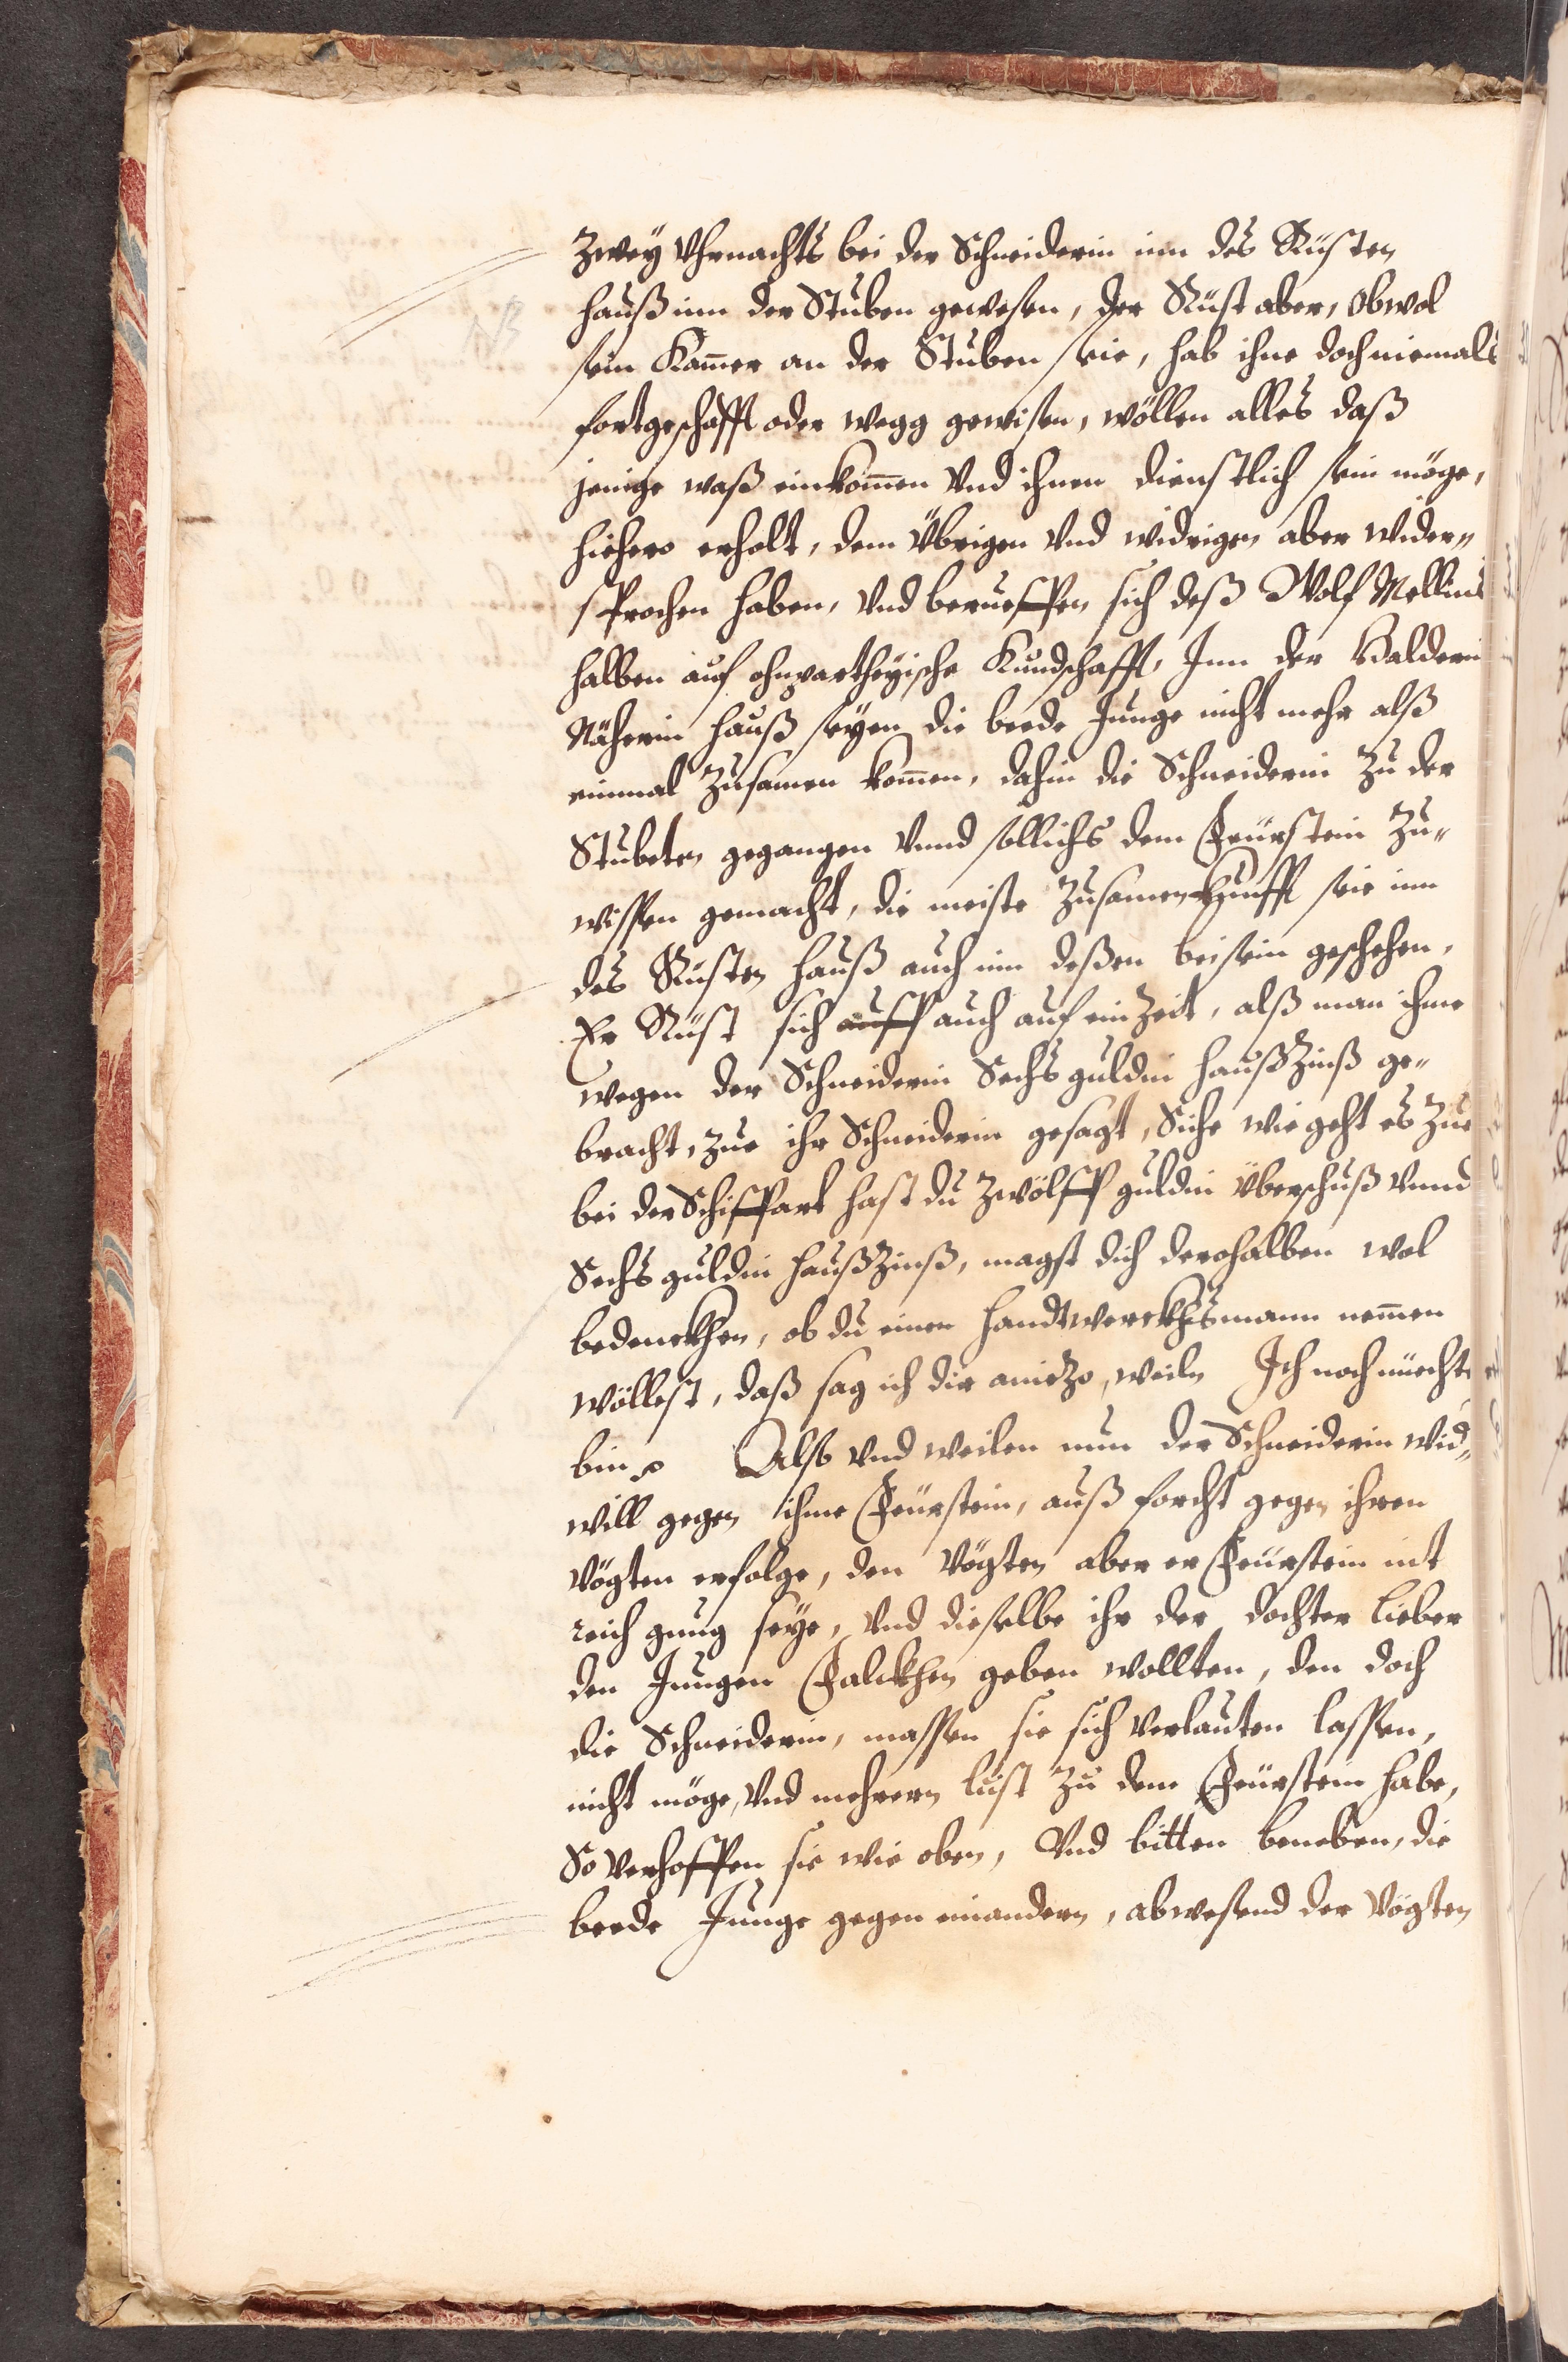 zwey Uhrnachts bei der Schneiderin inn des Küsten
NB
hauß inn der Stuben gewesen, der Küst aber, obwol
sein Kam̄er an der Stuben seie, hab ihne doch niemals
fortgeschafft oder wegg gewisen, wöllen alles daß
jenige waß einkom̄en vnd ihnen dienstlich sein möge,
hiehero erholt, dem übrigen vnd widrigen aber wider„
sprochen haben, vnd berueffen sich deß Wolf Mellins
halben auf ohnpartheyische Kundschafft, Inn der Baldern
Näherin hauß seyen die beede Junge nicht mehr alß
einmal zusamen kom̄en, dahin die Schneiderin zu der
Stubeten gegangen vnnd sollichs dem Feürstein zu„
wissen gemacht, die meiste zusamenkhunfft seie inn
des Küsten hauß auch inn deßen beisein geschehen,
Er Küst sich auff auch auf ein Zeit, alß man ihme
wegen der Schneiderin Sechs guldin haußzinß ge„
bracht, zue ihr Schneiderin gesagt, Sihe wie geht es zue
bei der Schiffart hast du zwölff guldin überschuß vnnd
Sechs guldin haußzinß, magst dich derohalben wol
bedenckhen, ob du einen handtwerckhsmann nem̄en
wöllest, daß sag ich dir aniezo, weiln Ich noch nüechter
bin Alß vnd weilen nun der Schneiderin wid„
will gegen ihme Feürstein, auß forcht gegen ihren
Vögten erfolge, den Vögten aber er Feürstein nit
reich gnug seye, vnd dieselbe ihr der dochter lieber
den Jungen Falckhen geben wollten, den doch
die Schneiderin, massen sie sich verlauten lassen,
nicht möge, vnd mehrern lust zu dem Feürstein habe,
So verhoffen sie wie oben, Vnd bitten beneben, die
beede Junge gegen einandern, abwesend der Vögten